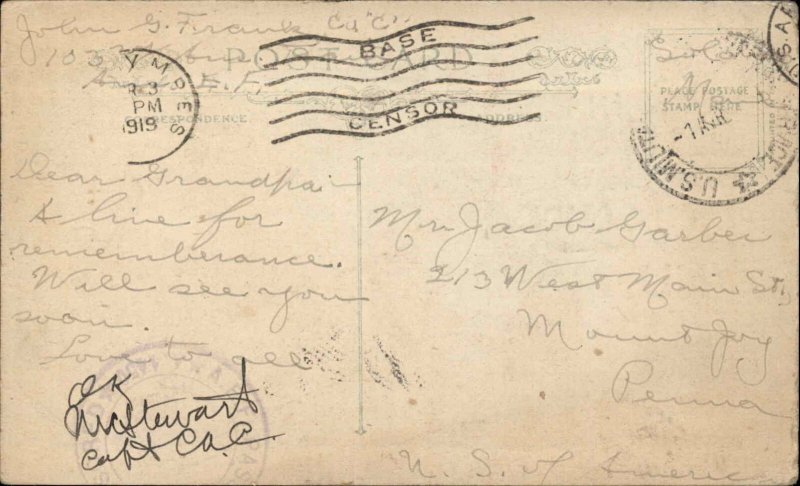 John G. Frank Co "C"
103
Am. E. F.
POST CARD
BASE
CENSOR
YMPES
R 3
PM
1919
RESPONDENCE.
ADDRESS.
PLACE POSTAGE
STAMP HERE
-7 APR
U.S. MILIT
Dear Grandpa:-
A line for
rememberance.
Will see you
soon.
Love to all
OK
Stewart
Capt CAC.
Mr. Jacob Garber
213 West Main St.,
Mount Joy
Penna
U. S. of America